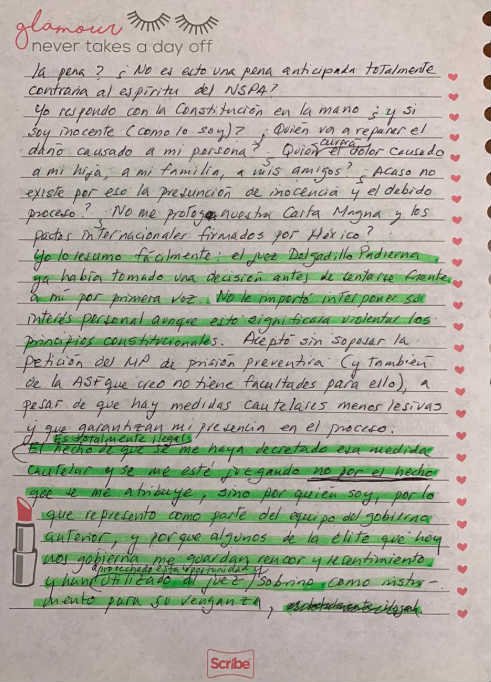 glamour
never takes a day off
la pena? ¿No es esto una pena anticipada totalmente
contraria al espíritu del NSPA?
Yo respondo con la Constitución en la mano ¿y si
soy inocente (como lo soy)? ¿Quién va a reparar el
daño causado a mi persona? ¿Quién curará el dolor causado
a mi hija, a mi familia, a mis amigos? ¿Acaso no
existe por eso la presunción de inocencia y el debido
proceso? ¿No me protege nuestra Carta Magna y los
pactos internacionales firmados por México?
Yo lo resumo fácilmente: el juez Delgadillo Padierna
ya había tomado una decisión antes de sentarse frente
a mí por primera vez. No le importó interponer su
interés personal aunque esto significara violentar los
principios constitucionales. Aceptó sin sopesar la
petición del MP de prisión preventiva (y también
de la ASF que creo no tiene facultades para ello), a
pesar de que hay medidas cautelares menos lesivas
y que garantizan mi presencia en el proceso.
Es totalmente ilegal
El hecho de que se me haya decretado esa medida
cautelar y se me esté juzgando no por el hecho
que se me atribuye, sino por quién soy, por lo
que represento como parte del equipo del gobierno
anterior, y porque algunos de la élite que hoy
nos gobierna me guardan rencor y resentimiento
y han aprovechado esta oportunidad y utilizado al juez/sobrino como instru-
mento para su venganza,
Scribe